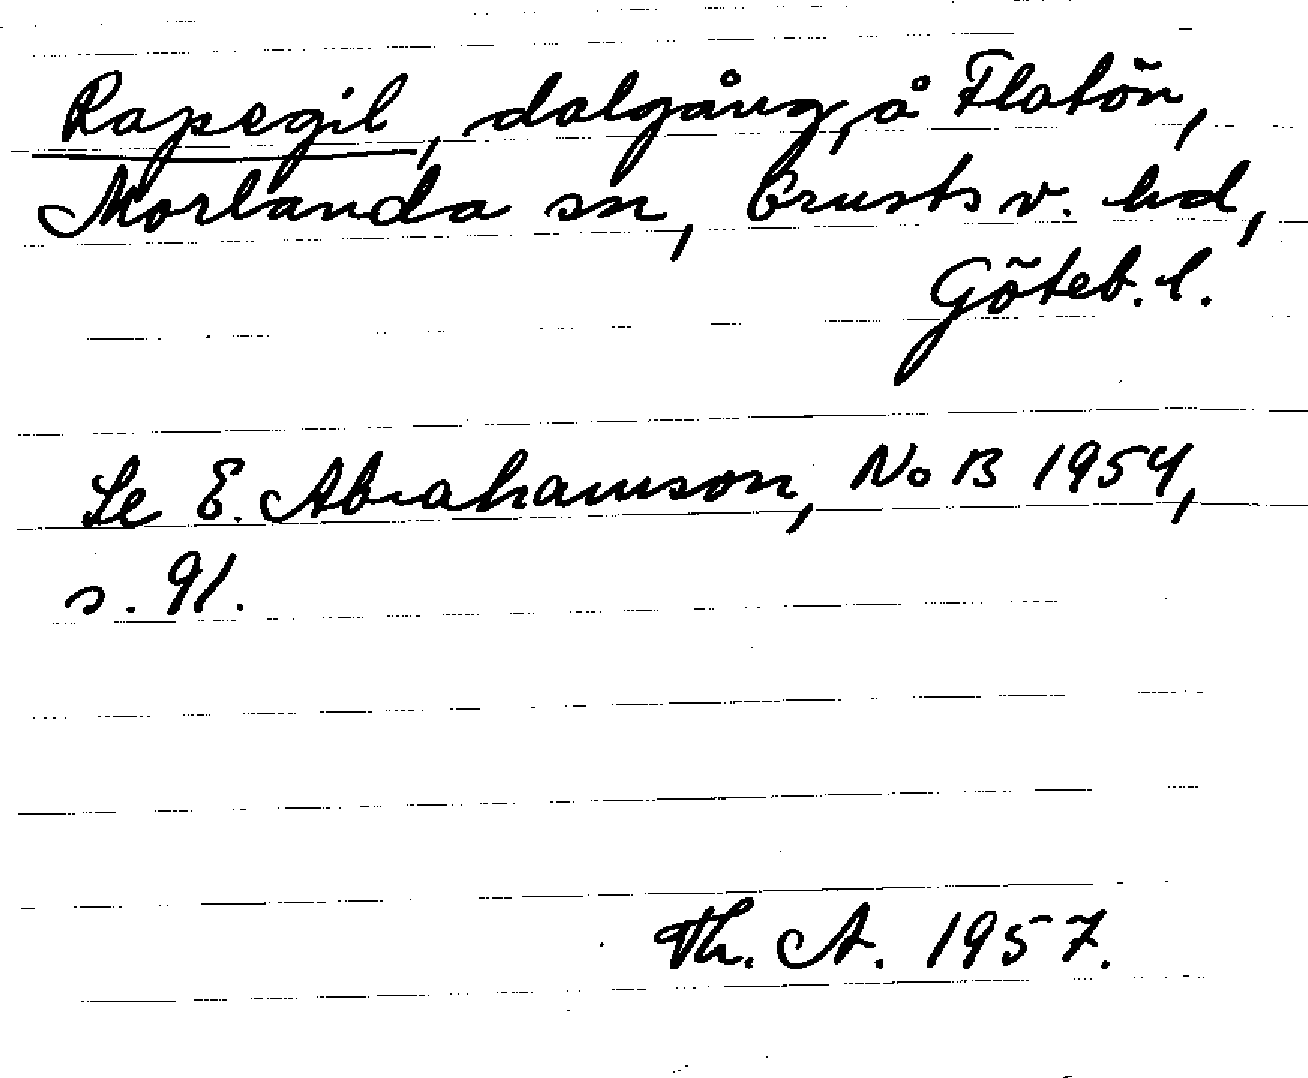 Rapegil, dalgång å Flatön,
Morlanda sn, Orusts v. hd,
Göteb. l.
Se E. Abrahamson, NoB 1954,
s. 91.
Th. A. 1957.